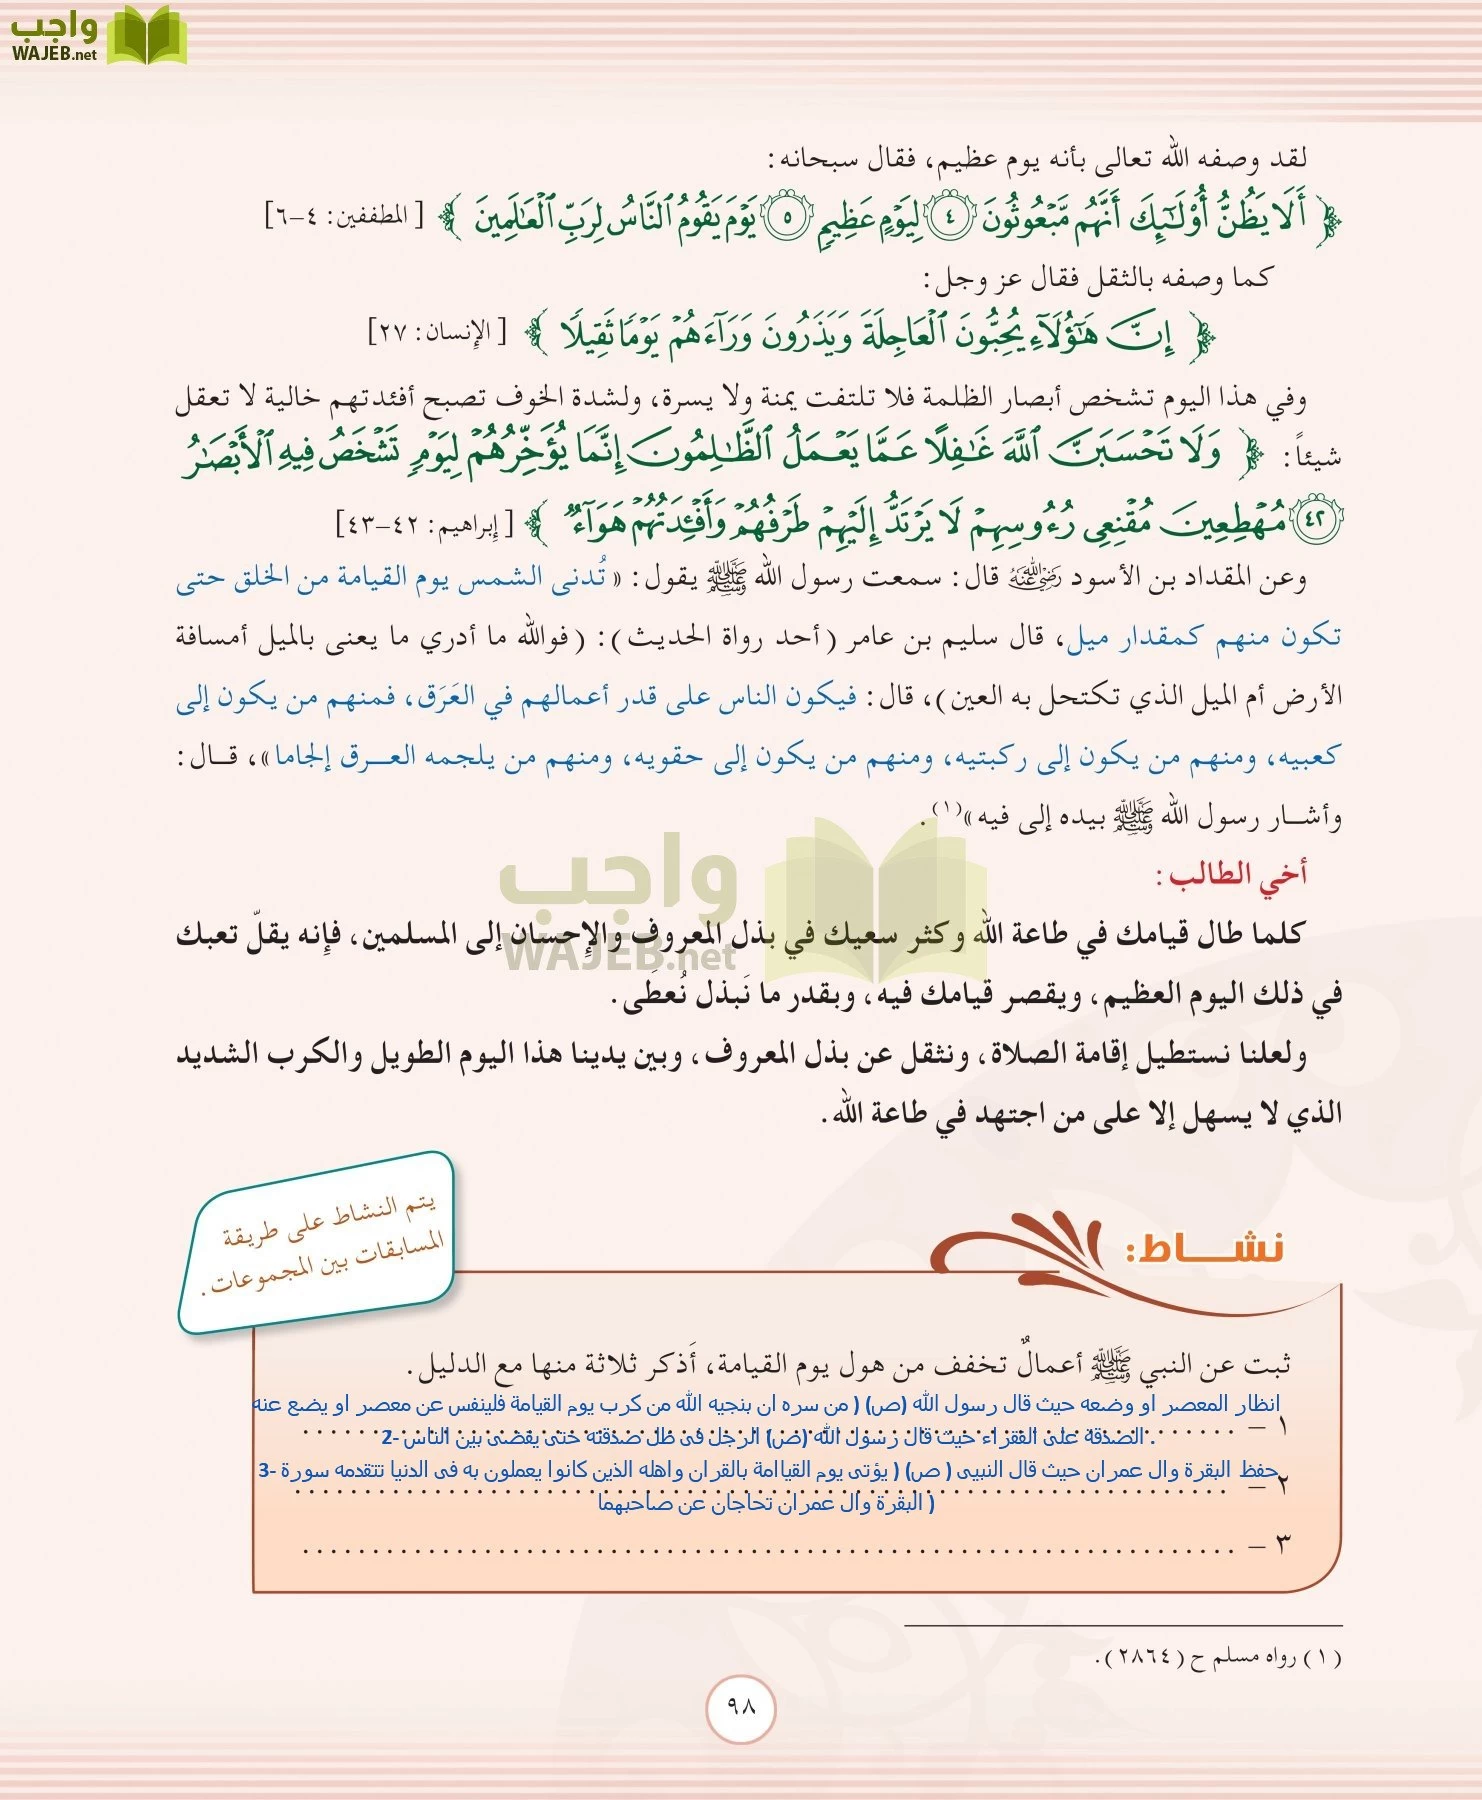 واجب
WAJEB.net
لقد وصفه الله تعالى بأنه يوم عظيم، فقال سبحانه:
﴿ أَلَا يَظُنُّ أُوْلَٰٓئِكَ أَنَّهُم مَّبۡعُوثُونَ ٤ لِيَوۡمٍ عَظِيمٖ ٥ يَوۡمَ يَقُومُ ٱلنَّاسُ لِرَبِّ ٱلۡعَٰلَمِينَ ﴾ [ المطففين: ٤–٦]
كما وصفه بالثقل فقال عز وجل:
﴿ إِنَّ هَٰٓؤُلَآءِ يُحِبُّونَ ٱلۡعَاجِلَةَ وَيَذَرُونَ وَرَآءَهُمۡ يَوۡمٗا ثَقِيلٗا ﴾ [ الإنسان: ٢٧]
وفي هذا اليوم تشخص أبصار الظلمة فلا تلتفت يمنة ولا يسرة، ولشدة الخوف تصبح أفئدتهم خالية لا تعقل
شيئاً: ﴿ وَلَا تَحۡسَبَنَّ ٱللَّهَ غَٰفِلًا عَمَّا يَعۡمَلُ ٱلظَّٰلِمُونَ إِنَّمَا يُؤَخِّرُهُمۡ لِيَوۡمٖ تَشۡخَصُ فِيهِ ٱلۡأَبۡصَٰرُ
٤٢ مُهۡطِعِينَ مُقۡنِعِي رُءُوسِهِمۡ لَا يَرۡتَدُّ إِلَيۡهِمۡ طَرۡفُهُمۡ وَأَفۡـِٔدَتُهُمۡ هَوَآءٞ ﴾ [ إبراهيم: ٤٢–٤٣]
وعن المقداد بن الأسود رضي الله عنه قال: سمعت رسول الله ﷺ يقول: « تُدنى الشمس يوم القيامة من الخلق حتى
تكون منهم كمقدار ميل، قال سليم بن عامر (أحد رواة الحديث): (فوالله ما أدري ما يعنى بالميل أمسافة
الأرض أم الميل الذي تكتحل به العين)، قال: فيكون الناس على قدر أعمالهم في العَرَق، فمنهم من يكون إلى
كعبيه، ومنهم من يكون إلى ركبتيه، ومنهم من يكون إلى حقويه، ومنهم من يلجمه العرق إلجاما»، قال:
وأشار رسول الله ﷺ بيده إلى فيه»(١).
أخي الطالب:
كلما طال قيامك في طاعة الله وكثر سعيك في بذل المعروف والإحسان إلى المسلمين، فإنه يقلّ تعبك
في ذلك اليوم العظيم، ويقصر قيامك فيه، وبقدر ما نَبذل نُعطَى.
ولعلنا نستطيل إقامة الصلاة، ونثقل عن بذل المعروف، وبين يدينا هذا اليوم الطويل والكرب الشديد
الذي لا يسهل إلا على من اجتهد في طاعة الله.
واجب
WAJEB.net
يتم النشاط على طريقة
المسابقات بين المجموعات.
نشاط:
ثبت عن النبي ﷺ أعمالٌ تخفف من هول يوم القيامة، أَذكر ثلاثة منها مع الدليل.
انظار المعصر او وضعه حيث قال رسول الله (ص) ( من سره ان بنجيه الله من كرب يوم القيامة فلينفس عن معصر او يضع عنه
١ –
2- الصدقة على الفقراء حيث قال رسول الله (ص) الرجل فى ظل صدقته حتى يقضى بين الناس.
3- حفظ البقرة وال عمران حيث قال النبيى ( ص) ( يؤتى يوم القياامة بالقران واهله الذين كانوا يعملون به فى الدنيا تتقدمه سورة
٢ –
البقرة وال عمران تحاجان عن صاحبهما )
٣ –
(١) رواه مسلم ح (٢٨٦٤).
٩٨